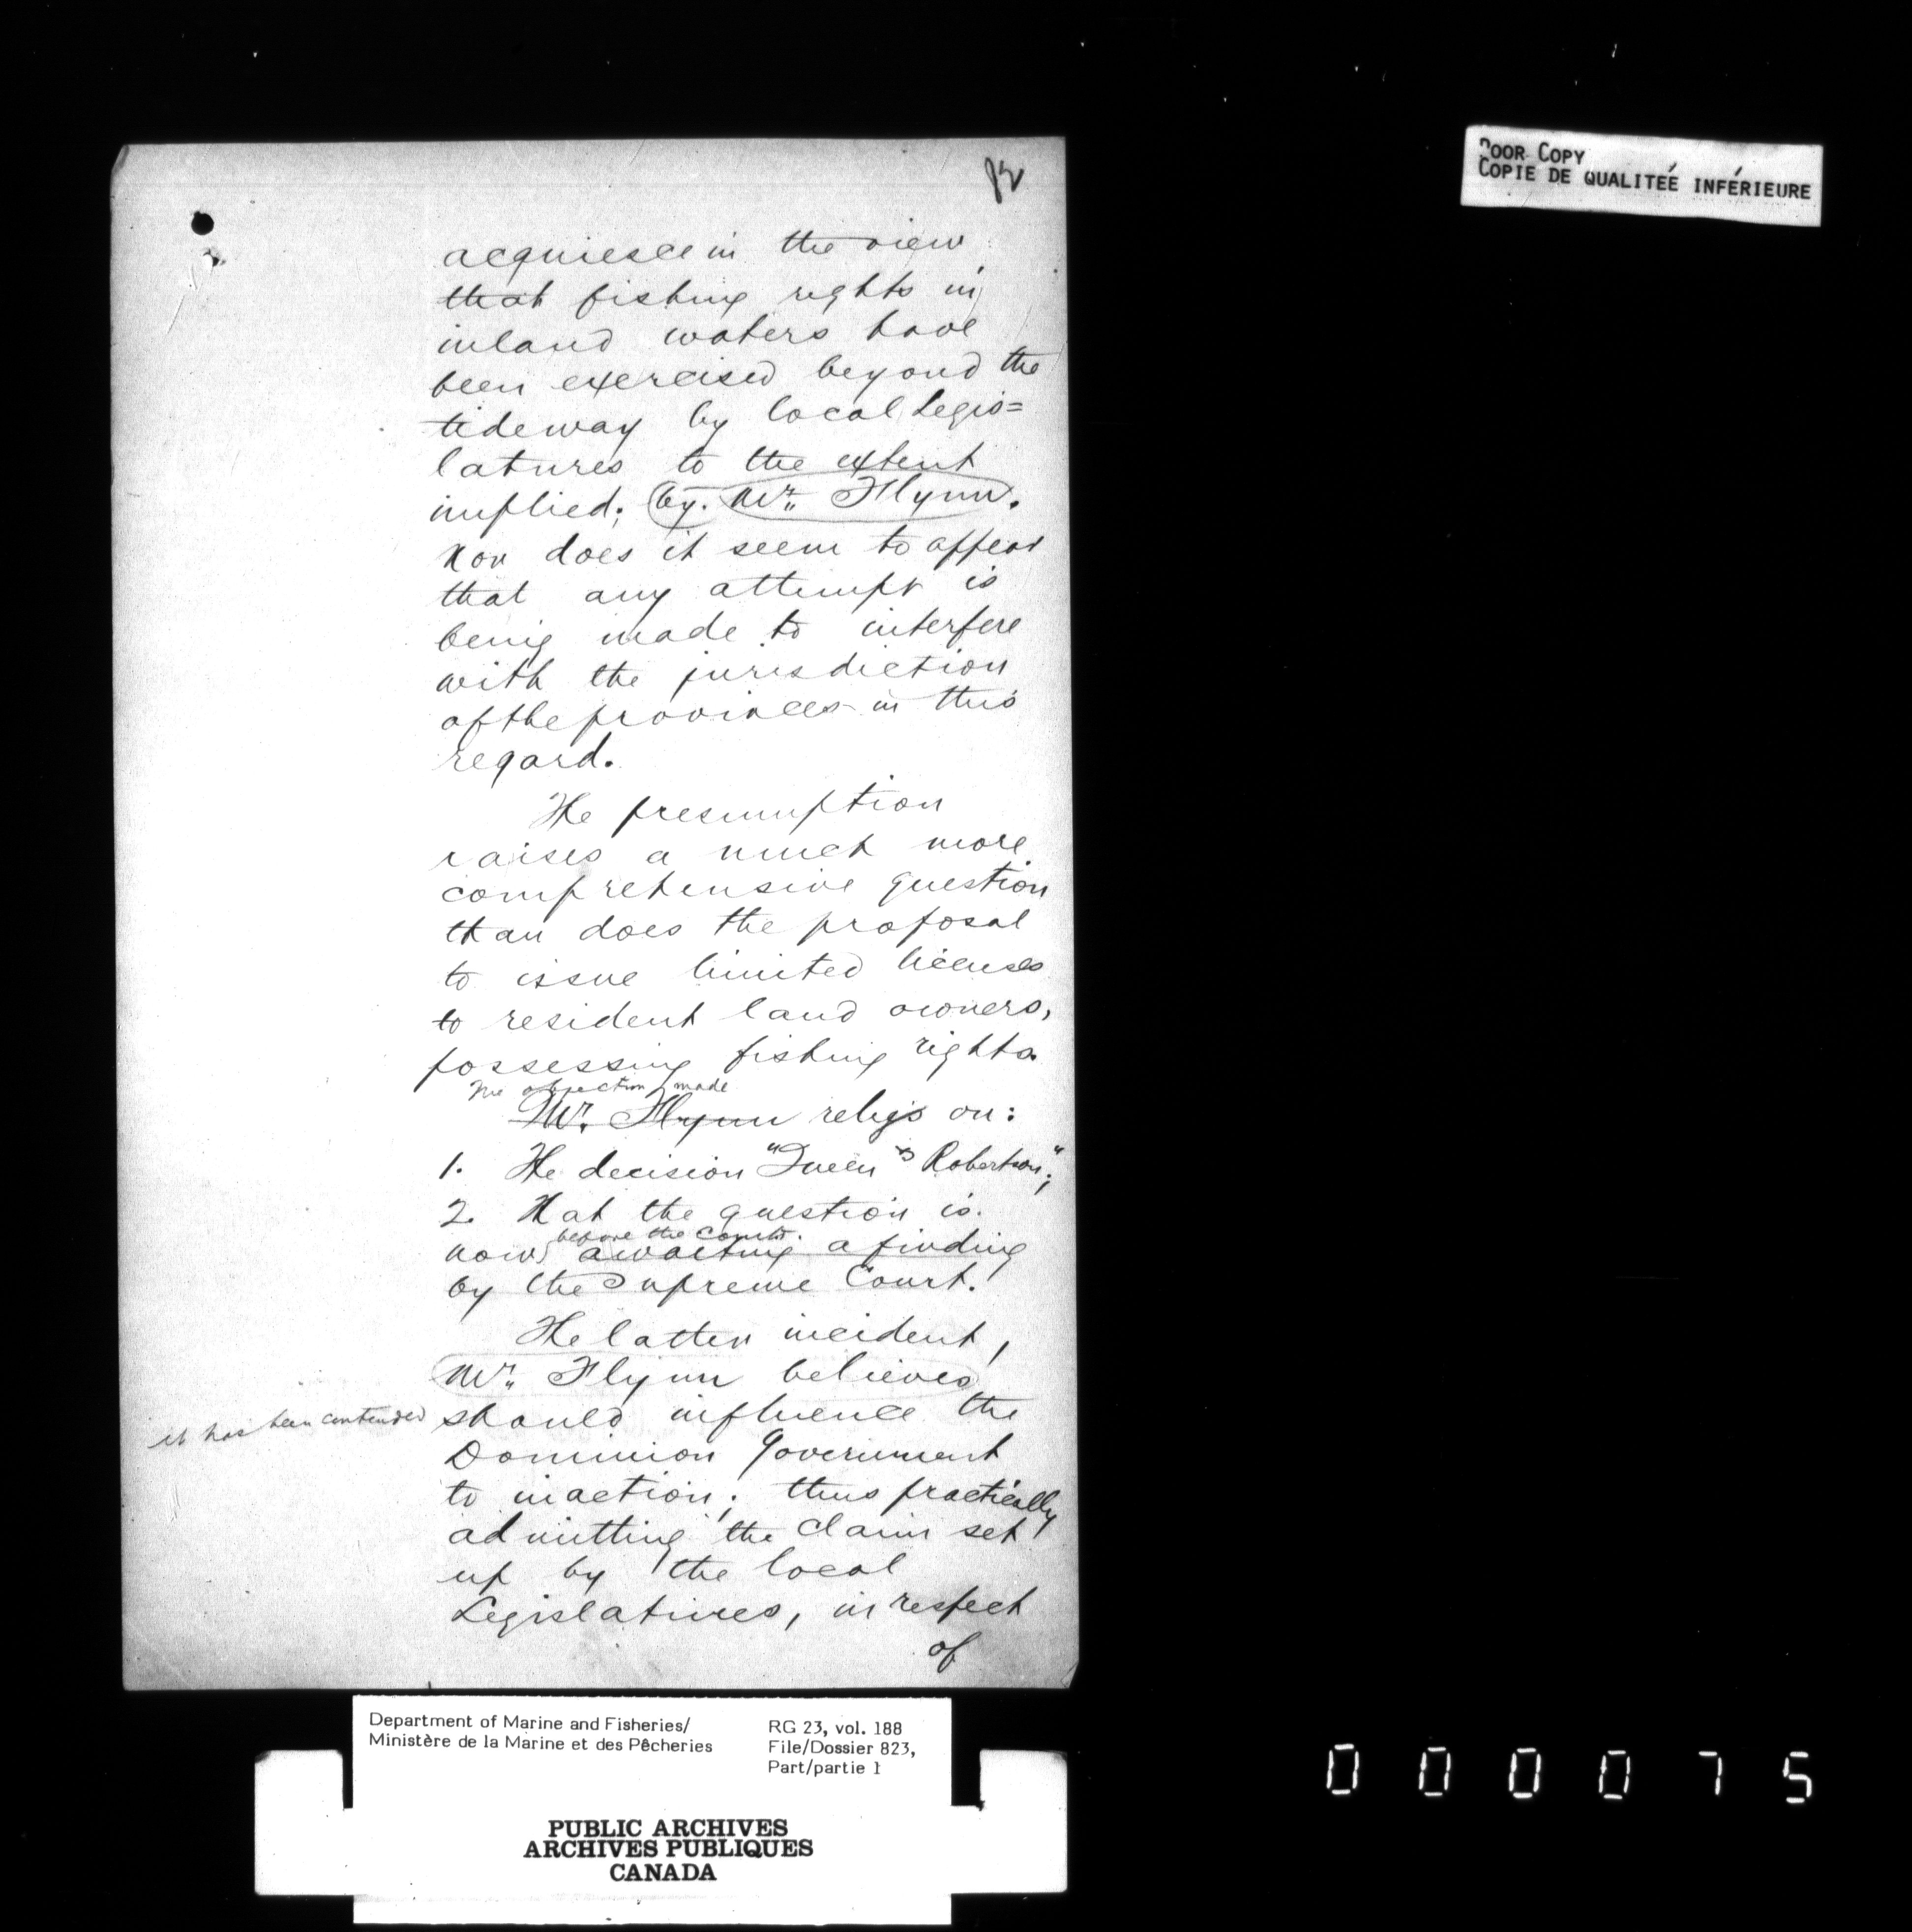 12
acquiesce in the view
that fishing rights in
inland waters have
been exercised beyond the
tideway by local Legis=
latures to the extent
implied; by. Mr. Flynn.
Nor does it seem to appear
that any attempt is
being made to interfere
with the jurisdiction
of the provinces in this
regard.
The presumption
raises a much more
comprehensive question
than does the proposal
to issue limited licenses
to resident land owners,
possessing fishing rights.
The objection made
Mr. Flynn relies on:
1. The decision "Queen vs Robertson";
2. That the question is
before the Courts.
now awaiting a finding
by the Supreme Court.
The latter incident,
Mr. Flynn believes
it has been contended
should influence the
Dominion Government
to inaction; thus practically
admitting the claim set
up by the local
Legislatures, in respect
of
POOR COPY
COPIE DE QUALITEÉ INFÉRIEURE
Department of Marine and Fisheries/
Ministère de la Marine et des Pêcheries
RG 23, vol. 188
File/Dossier 823,
Part/partie 1
PUBLIC ARCHIVES
ARCHIVES PUBLIQUES
CANADA
000075